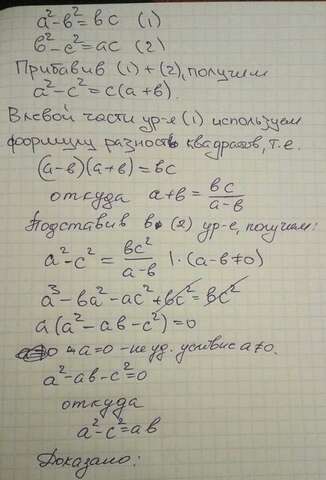 a²-в²=вс (1)
в²-с²=ас (2)
Прибавив (1)+(2), получим
a²-c²=c(a+в).
В левой части ур-е (1) используем
формулу разность квадратов, т.е.
(a-в)(a+в)=вс
откуда a+в=вс/(a-в)
Подставив в (2) ур-е, получим:
a²-c²=вс²/(a-в) |·(a-в≠0)
a³-вa²-ac²+вс²=вс²
a(a²-aв-c²)=0
a=0 - не уд. условие a≠0.
a²-aв-c²=0
откуда
a²-c²=aв
Доказано: